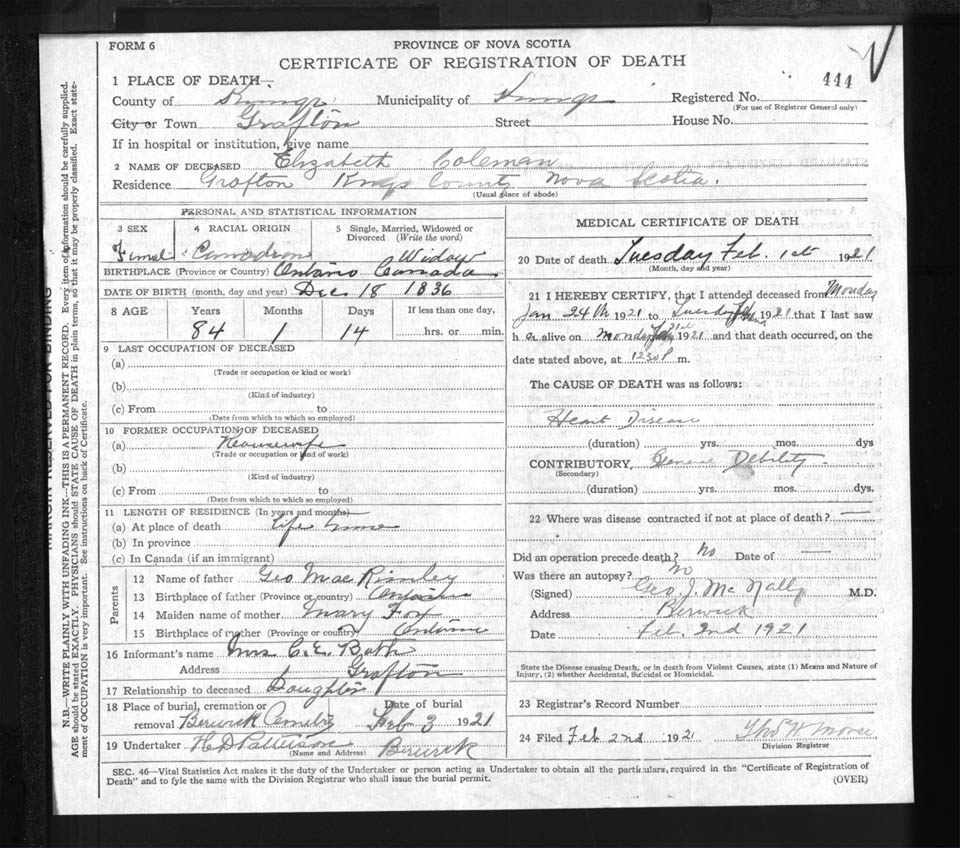 FORM 6
PROVINCE OF NOVA SCOTIA
CERTIFICATE OF REGISTRATION OF DEATH
444
1 PLACE OF DEATH—
County of Kings Municipality of Kings Registered No.
(For use of Registrar General only)
City or Town Grafton Street House No.
If in hospital or institution, give name
2 NAME OF DECEASED Elizabeth Coleman
Residence Grafton Kings County Nova Scotia.
(Usual place of abode)
PERSONAL AND STATISTICAL INFORMATION
3 SEX 4 RACIAL ORIGIN 5 Single, Married, Widowed or Divorced (Write the word)
Femal Widow
BIRTHPLACE (Province or Country) Ontario Canada
DATE OF BIRTH (month, day and year) Dec 18 1836
8 AGE Years Months Days If less than one day,
84 1 14 hrs. or min.
9 LAST OCCUPATION OF DECEASED
(a)
(Trade or occupation or kind or work)
(b)
(Kind of industry)
(c) From to
(Date from which to which so employed)
10 FORMER OCCUPATION OF DECEASED
(a) Housewife
(Trade or occupation or kind of work)
(b)
(Kind of industry)
(c) From to
(Date from which to which so employed)
11 LENGTH OF RESIDENCE (In years and months)
(a) At place of death life time
(b) In province
(c) In Canada (if an immigrant)
Parents
12 Name of father Geo Mac
13 Birthplace of father (Province or country) Ontario
14 Maiden name of mother Mary Fox
15 Birthplace of mother (Province or country) Ontario
16 Informant's name Mrs C. E. Bath
Address Grafton
17 Relationship to deceased Daughter
18 Place of burial, cremation or removal Berwick Cemetry Date of burial Feb 3 1921
19 Undertaker H D Patterson Berwick
(Name and Address)
MEDICAL CERTIFICATE OF DEATH
20 Date of death Tuesday Feb. 1st 1921
(Month, day and year)
21 I HEREBY CERTIFY, that I attended deceased from Monday
Jan 24th 1921 to Tuesday 1921 that I last saw
h alive on Monday 1921 and that death occurred, on the
date stated above, at 1230 P m.
The CAUSE OF DEATH was as follows:
Heart Disease
(duration) yrs. mos. dys
CONTRIBUTORY General Debility
(Secondary)
(duration) yrs. mos. dys.
22 Where was disease contracted if not at place of death? —
Did an operation precede death? No Date of —
Was there an autopsy? No
(Signed) Geo. J. McNally M.D.
Address Berwick
Date Feb. 2nd 1921
State the Disease causing Death, or in death from Violent Causes, state (1) Means and Nature of
Injury, (2) whether Accidental, Suicidal or Homicidal.
23 Registrar's Record Number
24 Filed Feb 2nd 1921
Division Registrar
SEC. 46—Vital Statistics Act makes it the duty of the Undertaker or person acting as Undertaker to obtain all the particulars, required in the "Certificate of Registration of
Death" and to fyle the same with the Division Registrar who shall issue the burial permit.
(OVER)
MARGIN RESERVED FOR BINDING
N.B.—WRITE PLAINLY WITH UNFADING INK—THIS IS A PERMANENT RECORD. Every item of information should be carefully supplied.
AGE should be stated EXACTLY. PHYSICIANS should STATE CAUSE OF DEATH in plain terms, so that it may be properly classified. Exact state-
ment of OCCUPATION is very important. See instructions on back of Certificate.